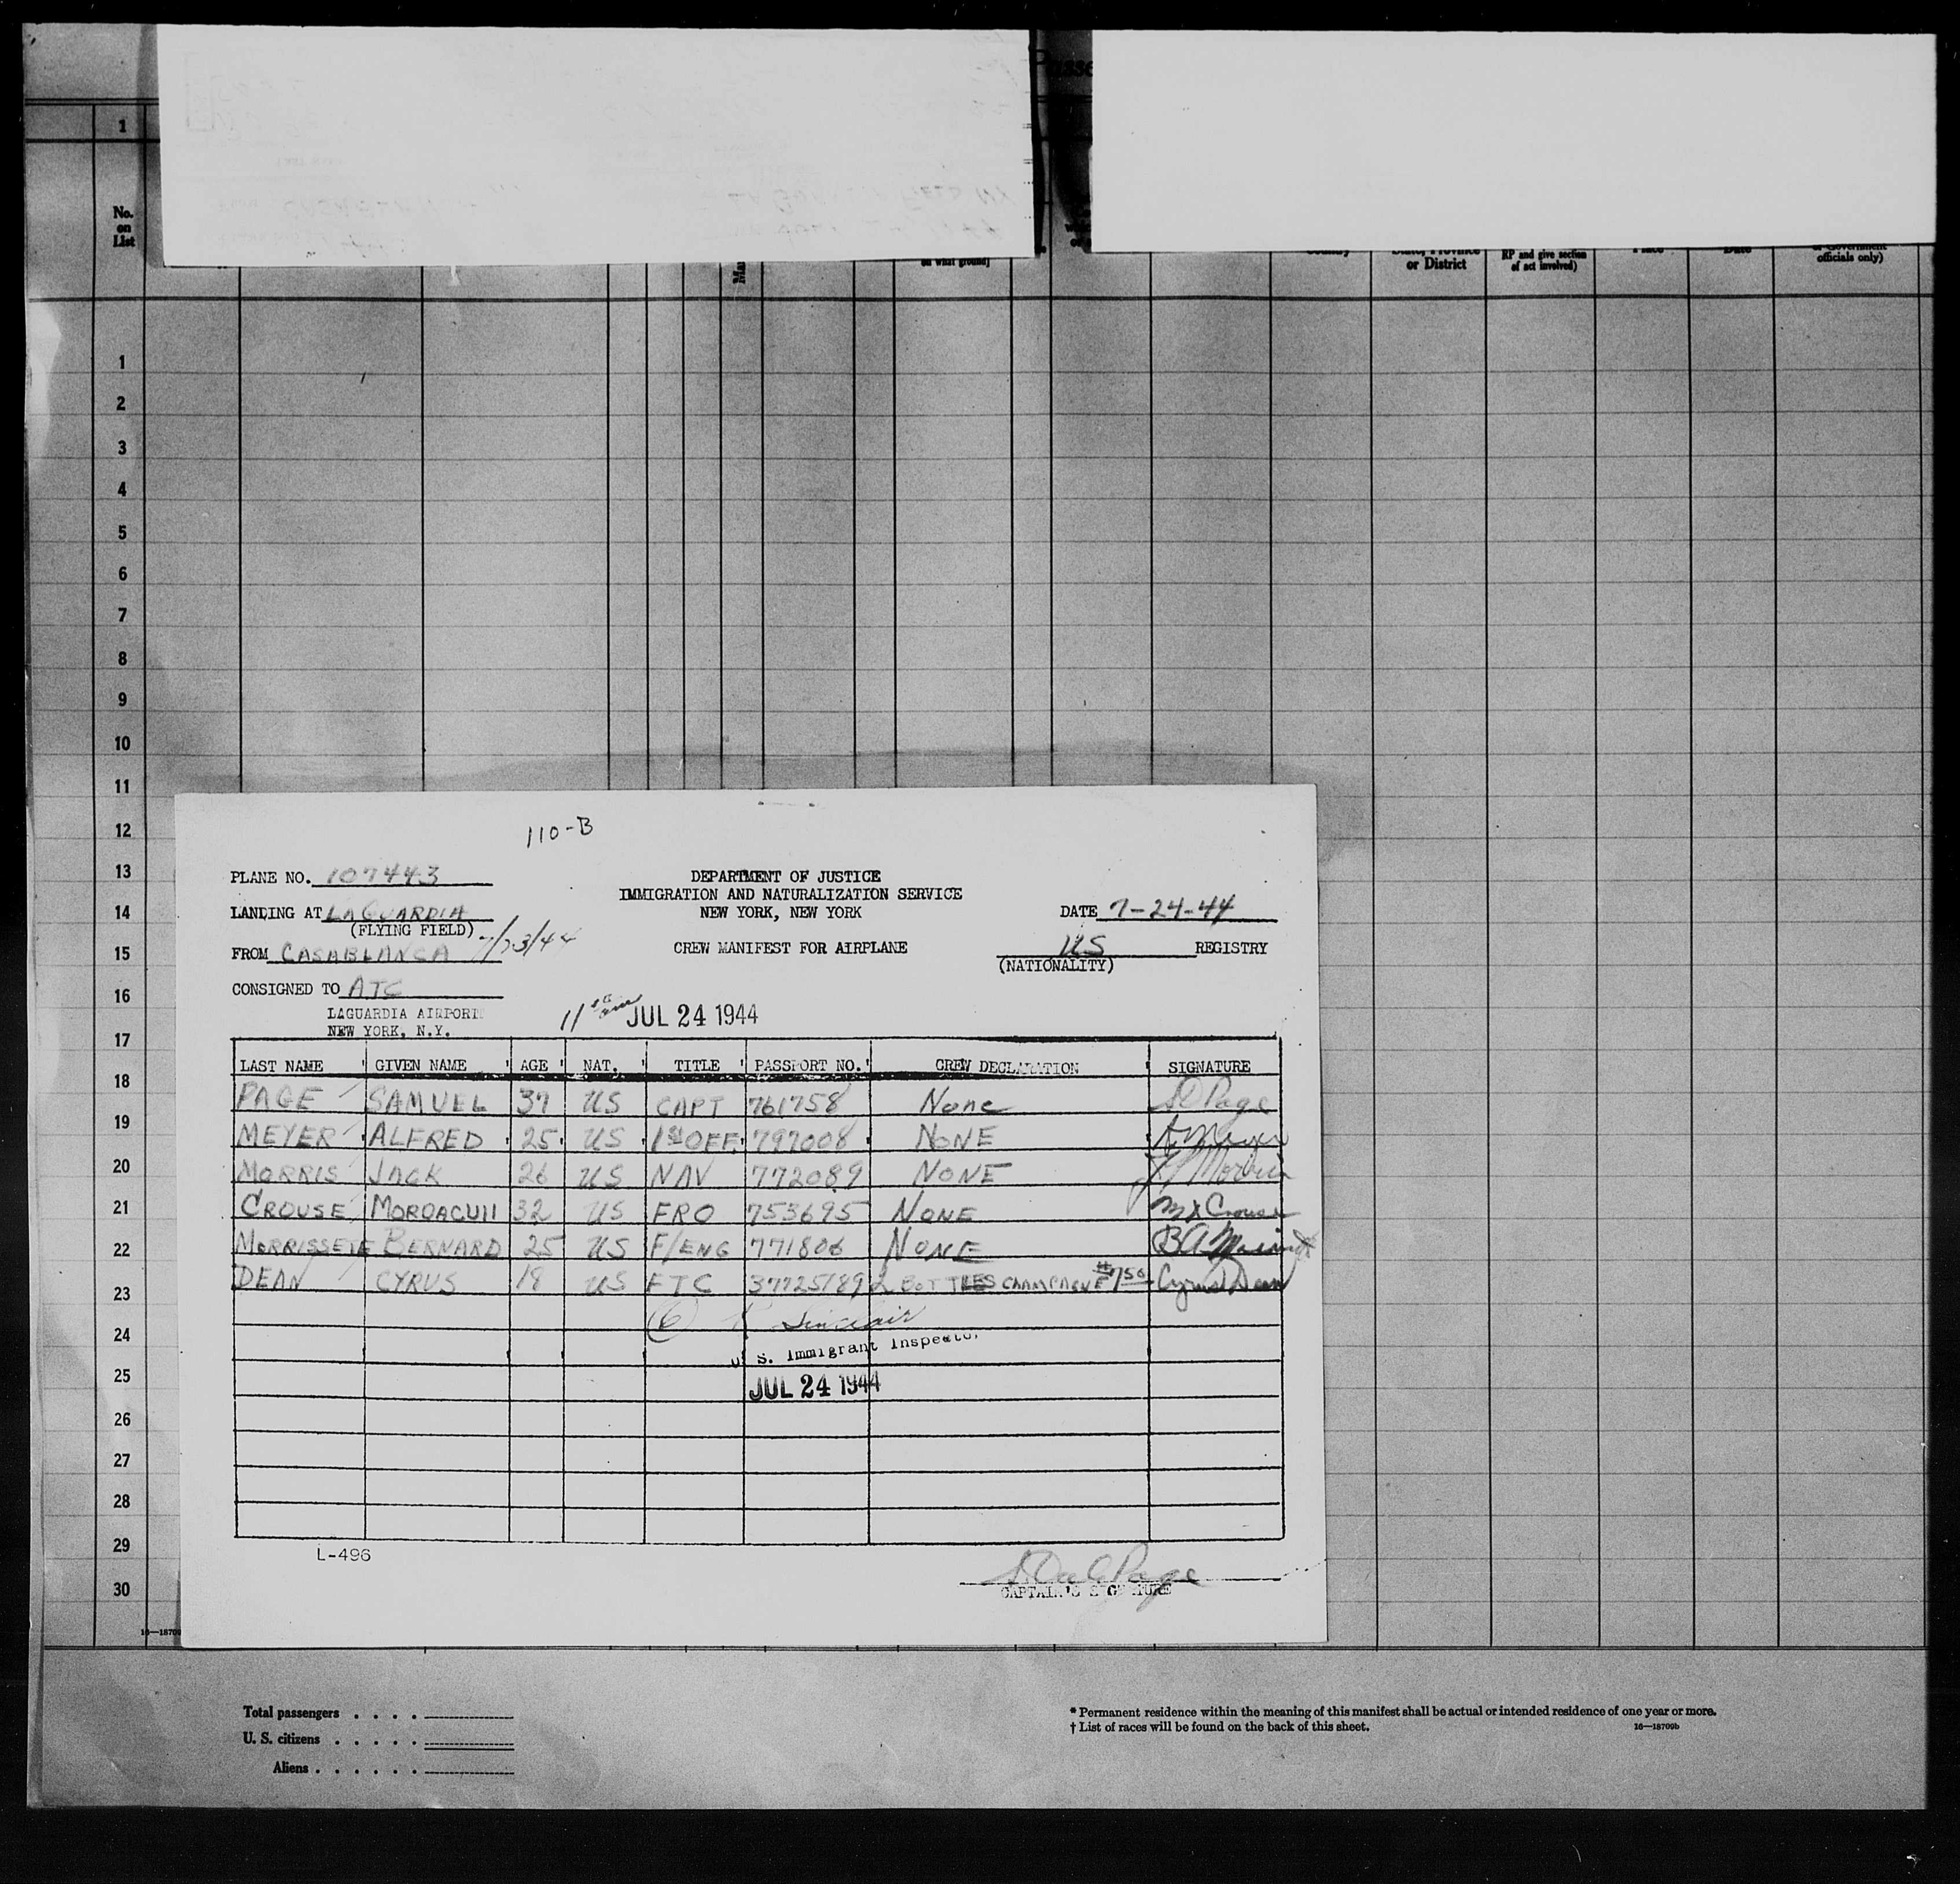 Passe
1
No.
on
List
on what ground)
or District
RP and give section
of act involved)
officials only)
1
2
3
4
5
6
7
8
9
10
11
12
13
14
15
16
17
18
19
20
21
22
23
24
25
26
27
28
29
30
110-B
PLANE NO. 107443
DEPARTMENT OF JUSTICE
IMMIGRATION AND NATURALIZATION SERVICE
NEW YORK, NEW YORK
LANDING AT LAGUARDIA
(FLYING FIELD)
DATE 7-24-44
FROM CASABLANCA 7/23/44
CREW MANIFEST FOR AIRPLANE
US REGISTRY
(NATIONALITY)
CONSIGNED TO ATC
LAGUARDIA AIRPORT
NEW YORK, N.Y.
JUL 24 1944
LAST NAME GIVEN NAME AGE NAT. TITLE PASSPORT NO. CREW DECLARATION SIGNATURE
PAGE SAMUEL 37 US CAPT 761758 None SD Page
MEYER ALFRED 25 US 1st OFF. 797008 NONE A Meyer
MORRIS JACK 26 US NAV 772089 NONE Morris
CROUSE US FRO 753695 NONE Crouse
MORRISSETE BERNARD 25 US F/ENG 771806 NONE
DEAN CYRUS 18 US FTC 37725189 2 BOTTLES CHAMPAGNE Cyrus Dean
(6) Sinclair
U. S. Immigrant Inspector
JUL 24 1944
L-496
Page
CAPTAIN'S SIGNATURE
16—18709
Total passengers
U. S. citizens
Aliens
* Permanent residence within the meaning of this manifest shall be actual or intended residence of one year or more.
† List of races will be found on the back of this sheet. 16—18709b